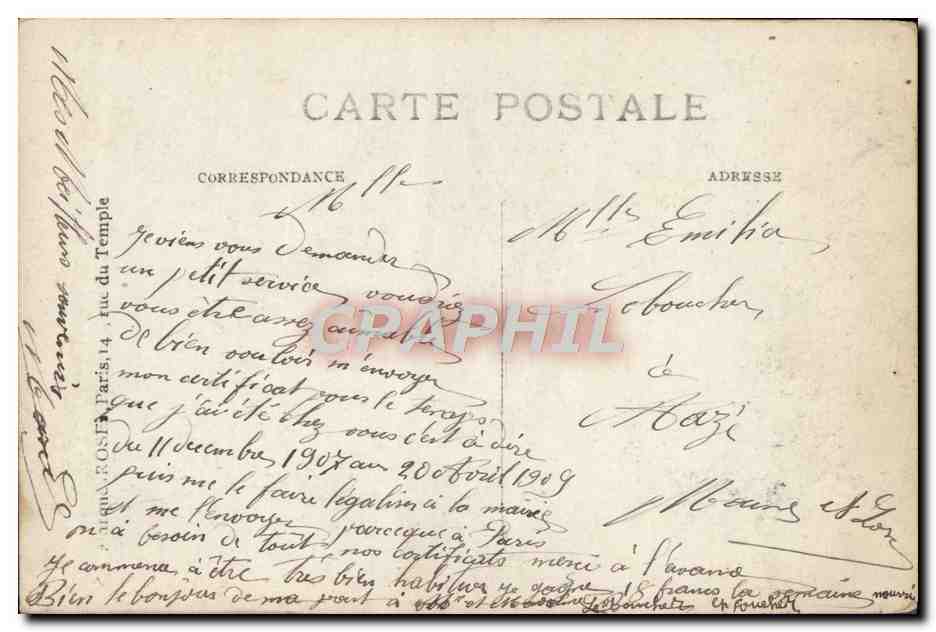 CARTE POSTALE
CORRESPONDANCE
ADRESSE
Mlle
Je viens vous demander
un petit service voudriez
vous être assez aimable
de bien vouloir m'envoyer
mon certificat pour le temps
que j'ai été chez vous c'est à dire
du 11 decembre 1907 au 20 Avril 1909
puis me le faire légaliser à la mairie
et me l'envoyer parceque à Paris
on a besoin de tout nos certificats merci à l'avance
Je commence à être très bien habituer je gagne 18 francs la semaine nourri
Bien le bonjour de ma part à et
Mlle Emilia
Leboucher
à
Mazé
Maine et Loire
Mes meilleurs souvenirs
ROSEN, Paris, 14, rue du Temple
CPAPHIL